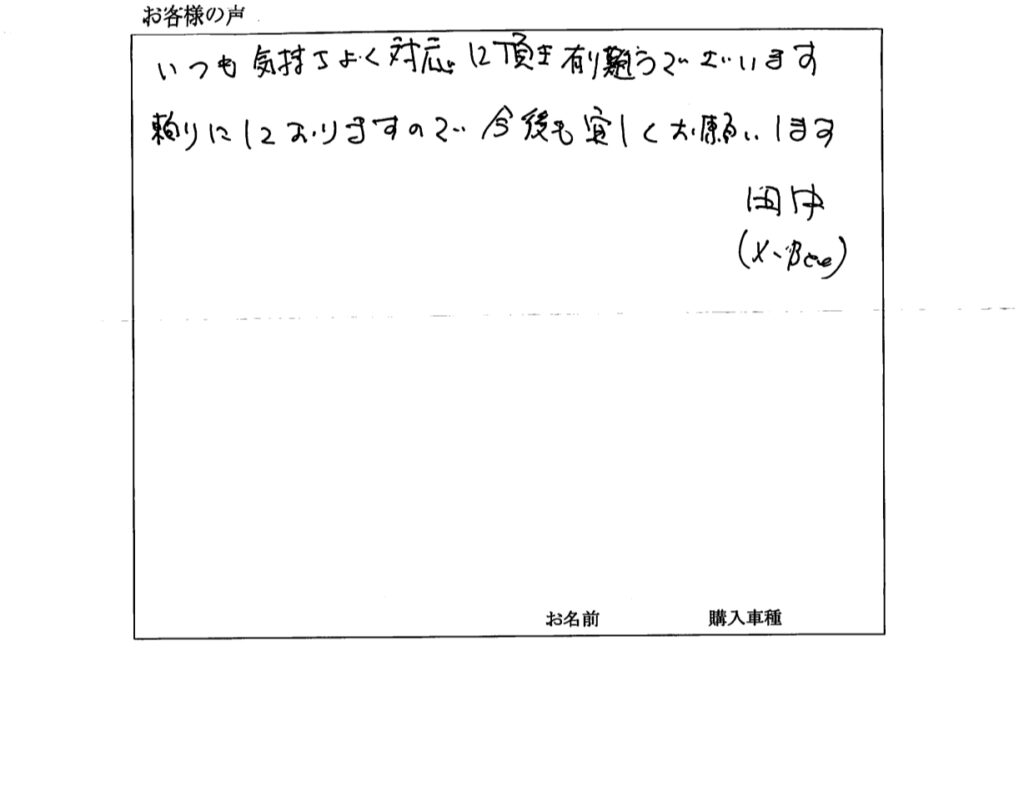 お客様の声
いつも気持ちよく対応して頂き有り難うございます
頼りにしておりますので今後も宜しくお願いします
田中
(X-Bee)
お名前 購入車種